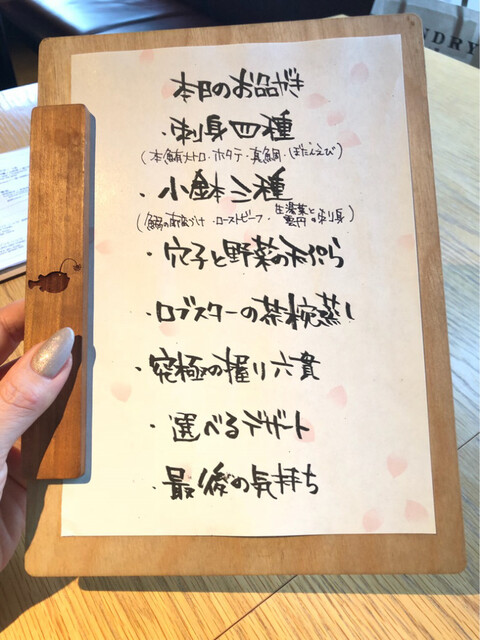 NDRY
本日のお品がき
・刺身四種
(本鮪大トロ・ホタテ・真鯛・ぼたんえび)
・小鉢三種
(鰯の南蛮づけ・ローストビーフ・生湯葉と
刺身)
・穴子と野菜の天ぷら
・ロブスターの茶碗蒸し
・究極の握り六貫
・選べるデザート
・最後の気持ち